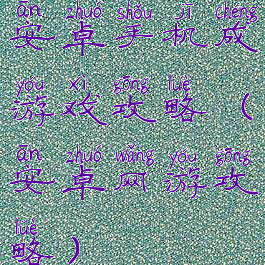 ān zhuó shǒu jī chéng
安卓手机成
yóu xì gōng lüè
游戏攻略（
ān zhuó wǎng yóu gōng
安卓网游攻
lüè
略）